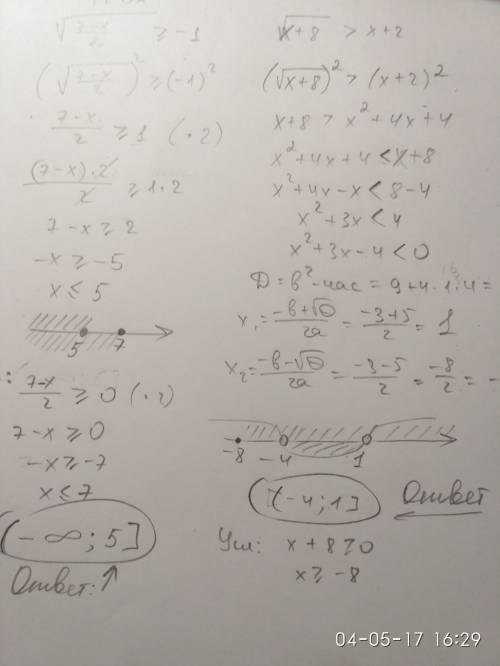 √((7-x)/2) ≥ -1
(√((7-x)/2))² ≥ (-1)²
(7-x)/2 ≥ 1 (·2)
((7-x)·2)/2 ≥ 1·2
7-x ≥ 2
-x ≥ -5
x ≤ 5
5 7
(7-x)/2 ≥ 0 (·2)
7-x ≥ 0
-x ≥ -7
x ≤ 7
(-∞; 5]
Ответ: ↑
√(x+8) > x+2
(√(x+8))² > (x+2)²
x+8 > x²+4x+4
x²+4x+4 < x+8
x²+4x-x < 8-4
x²+3x < 4
x²+3x-4 < 0
D = b²-4ac = 9+4·1·4 =
x₁ = (-b+√D)/2a = (-3+5)/2 = 1
x₂ = (-b-√D)/2a = (-3-5)/2 = -8/2 = -
-8 -4 1
(-4; 1] Ответ
Усл: x+8 ≥ 0
x ≥ -8
04-05-17 16:29